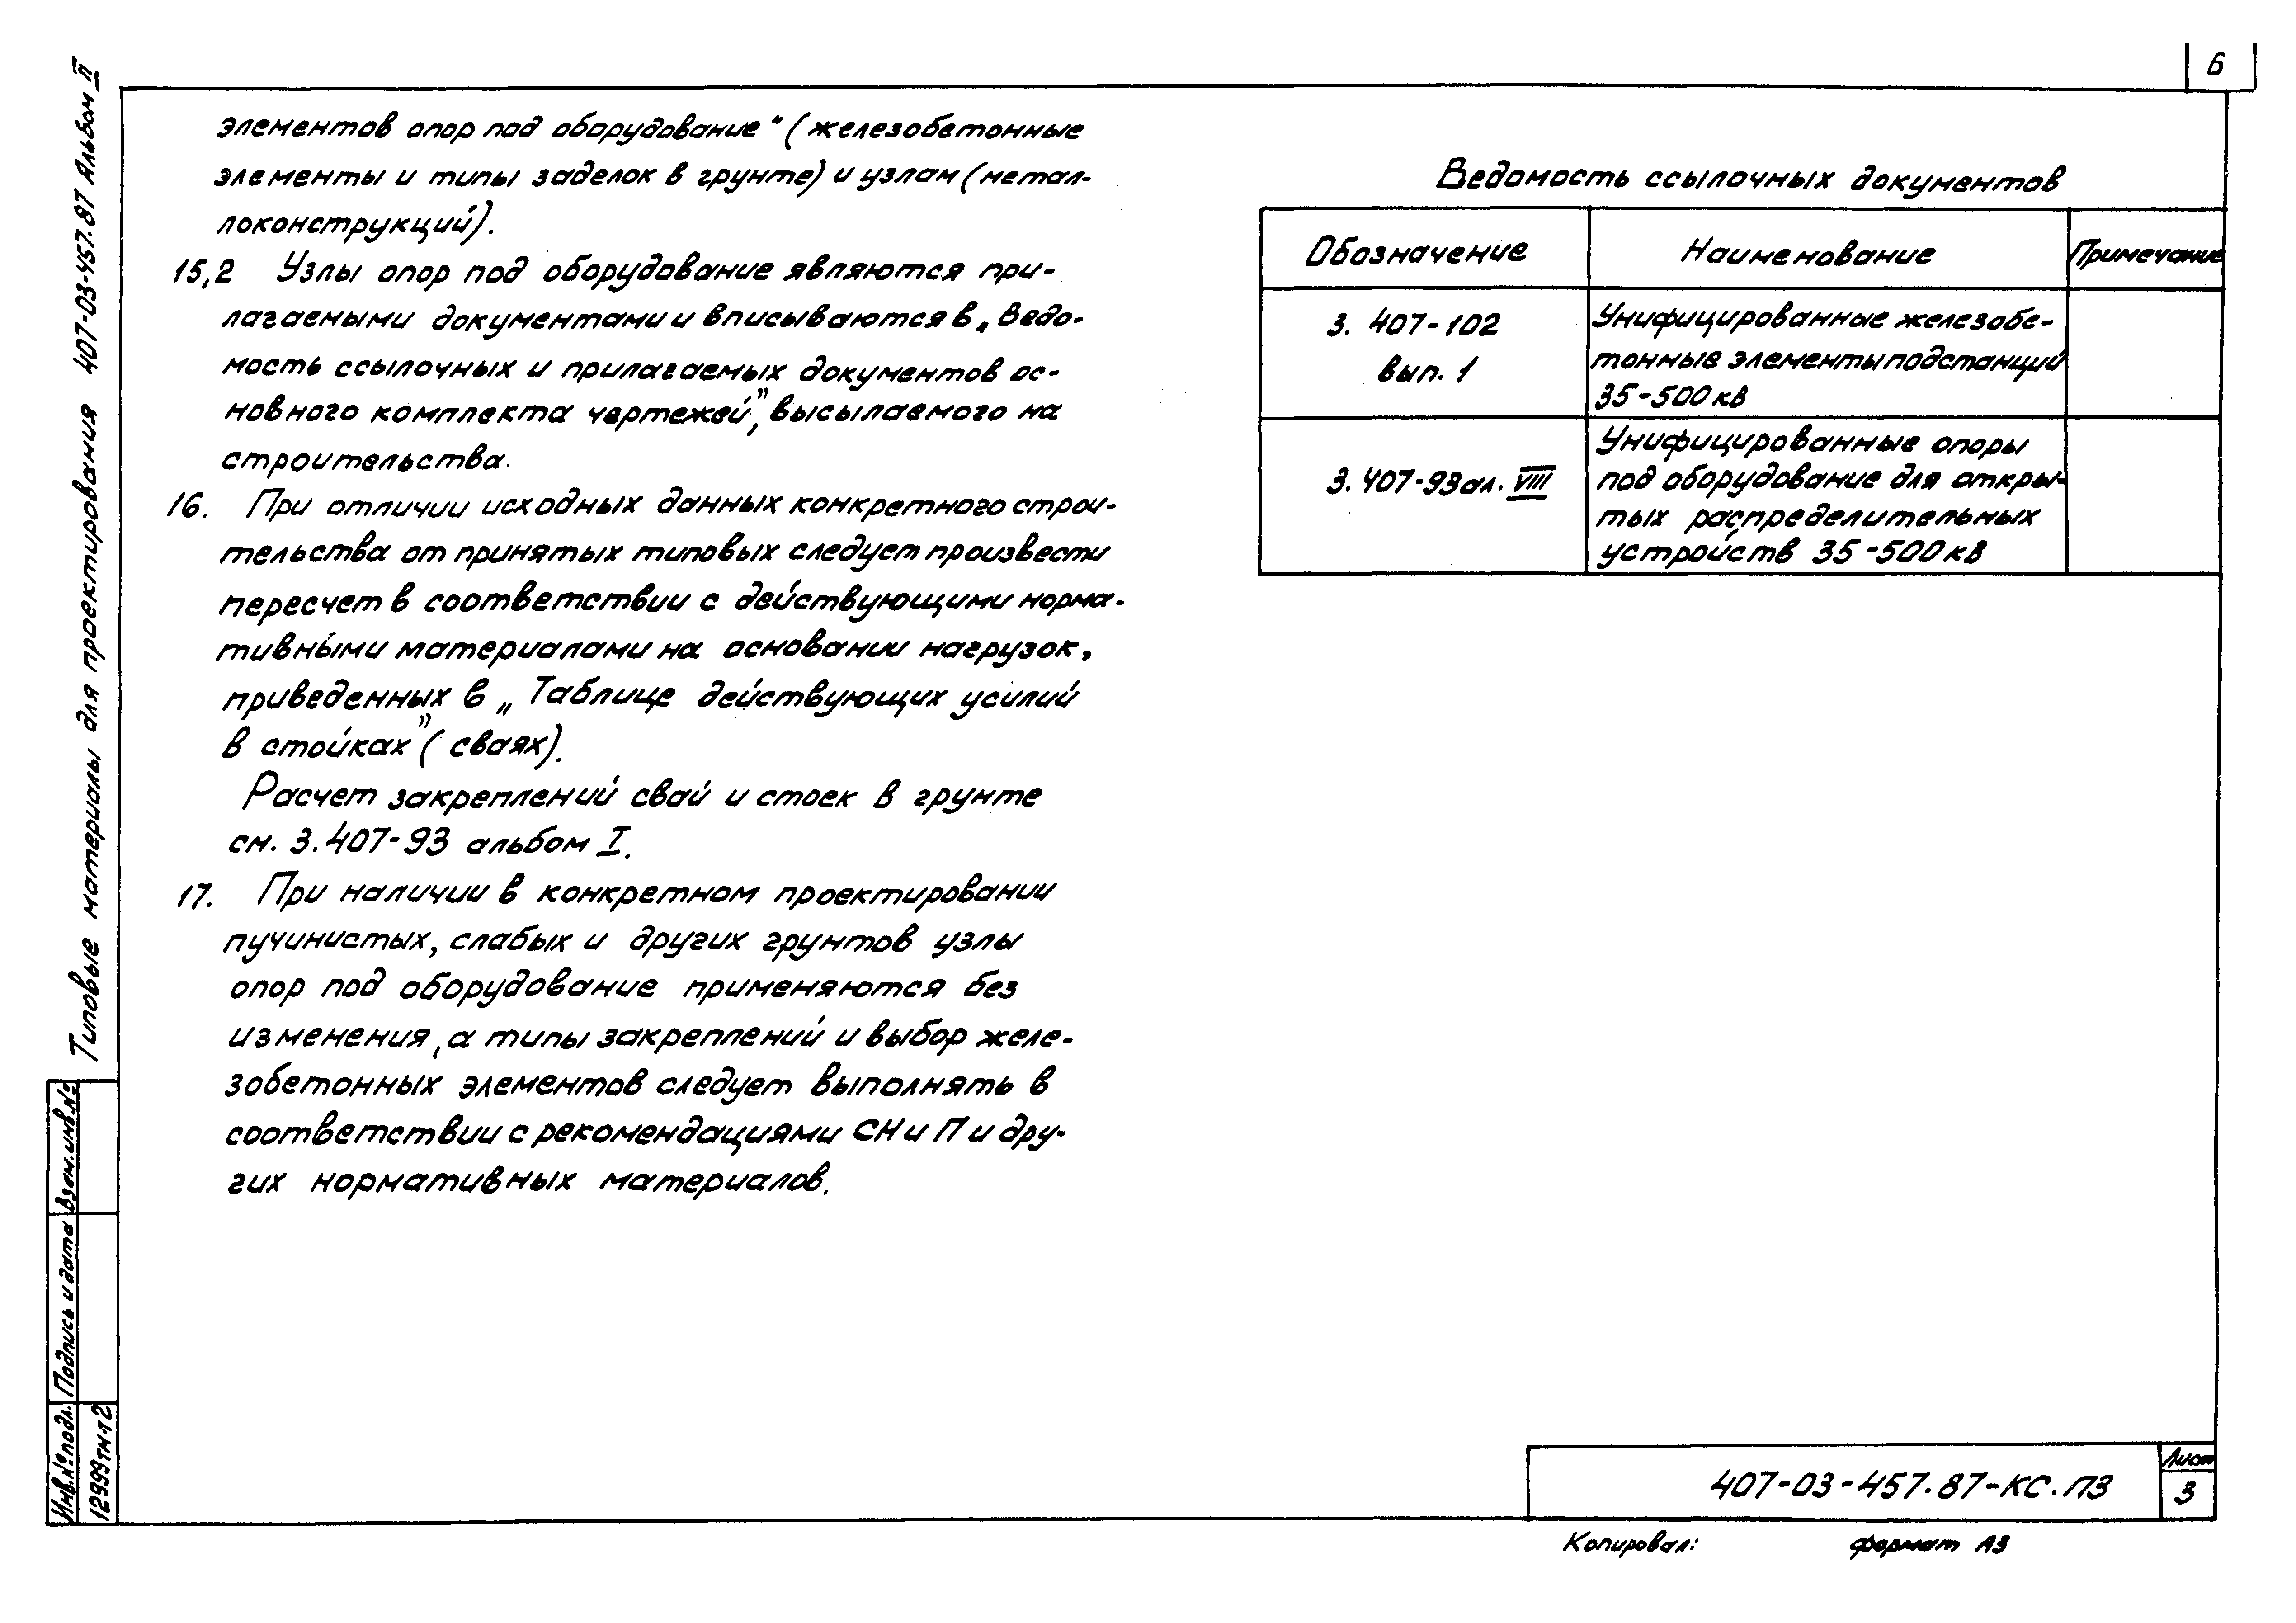 6
Типовые материалы для проектирования 407-03-457.87 Альбом II
элементов опор под оборудование" (железобетонные
элементы и типы заделок в грунте) и узлам (метал-
локонструкций).
15,2 Узлы опор под оборудование являются при-
лагаемыми документами и вписываются в „Ведо-
мость ссылочных и прилагаемых документов ос-
новного комплекта чертежей", высылаемого на
строительства.
16. При отличии исходных данных конкретного строи-
тельства от принятых типовых следует произвести
пересчет в соответствии с действующими норма-
тивными материалами на основании нагрузок,
приведенных в „Таблице действующих усилий
в стойках" (сваях).
Расчет закреплений свай и стоек в грунте
см. 3.407-93 альбом I.
17. При наличии в конкретном проектировании
пучинистых, слабых и других грунтов узлы
опор под оборудование применяются без
изменения, а типы закреплений и выбор желе-
зобетонных элементов следует выполнять в
соответствии с рекомендациями СНиП и дру-
гих нормативных материалов.
Ведомость ссылочных документов
Обозначение Наименование Примечание
3. 407-102
вып. 1
Унифицированные железобе-
тонные элементы подстанций
35-500 кВ
3.407-93 ал. VIII
Унифицированные опоры
под оборудование для откры-
тых распределительных
устройств 35-500 кВ
Взам.инв.№
Подпись и дата
Инв.№подл.
12999тм-т2
407-03-457.87-КС.ПЗ
Лист
3
Копировал: формат А3